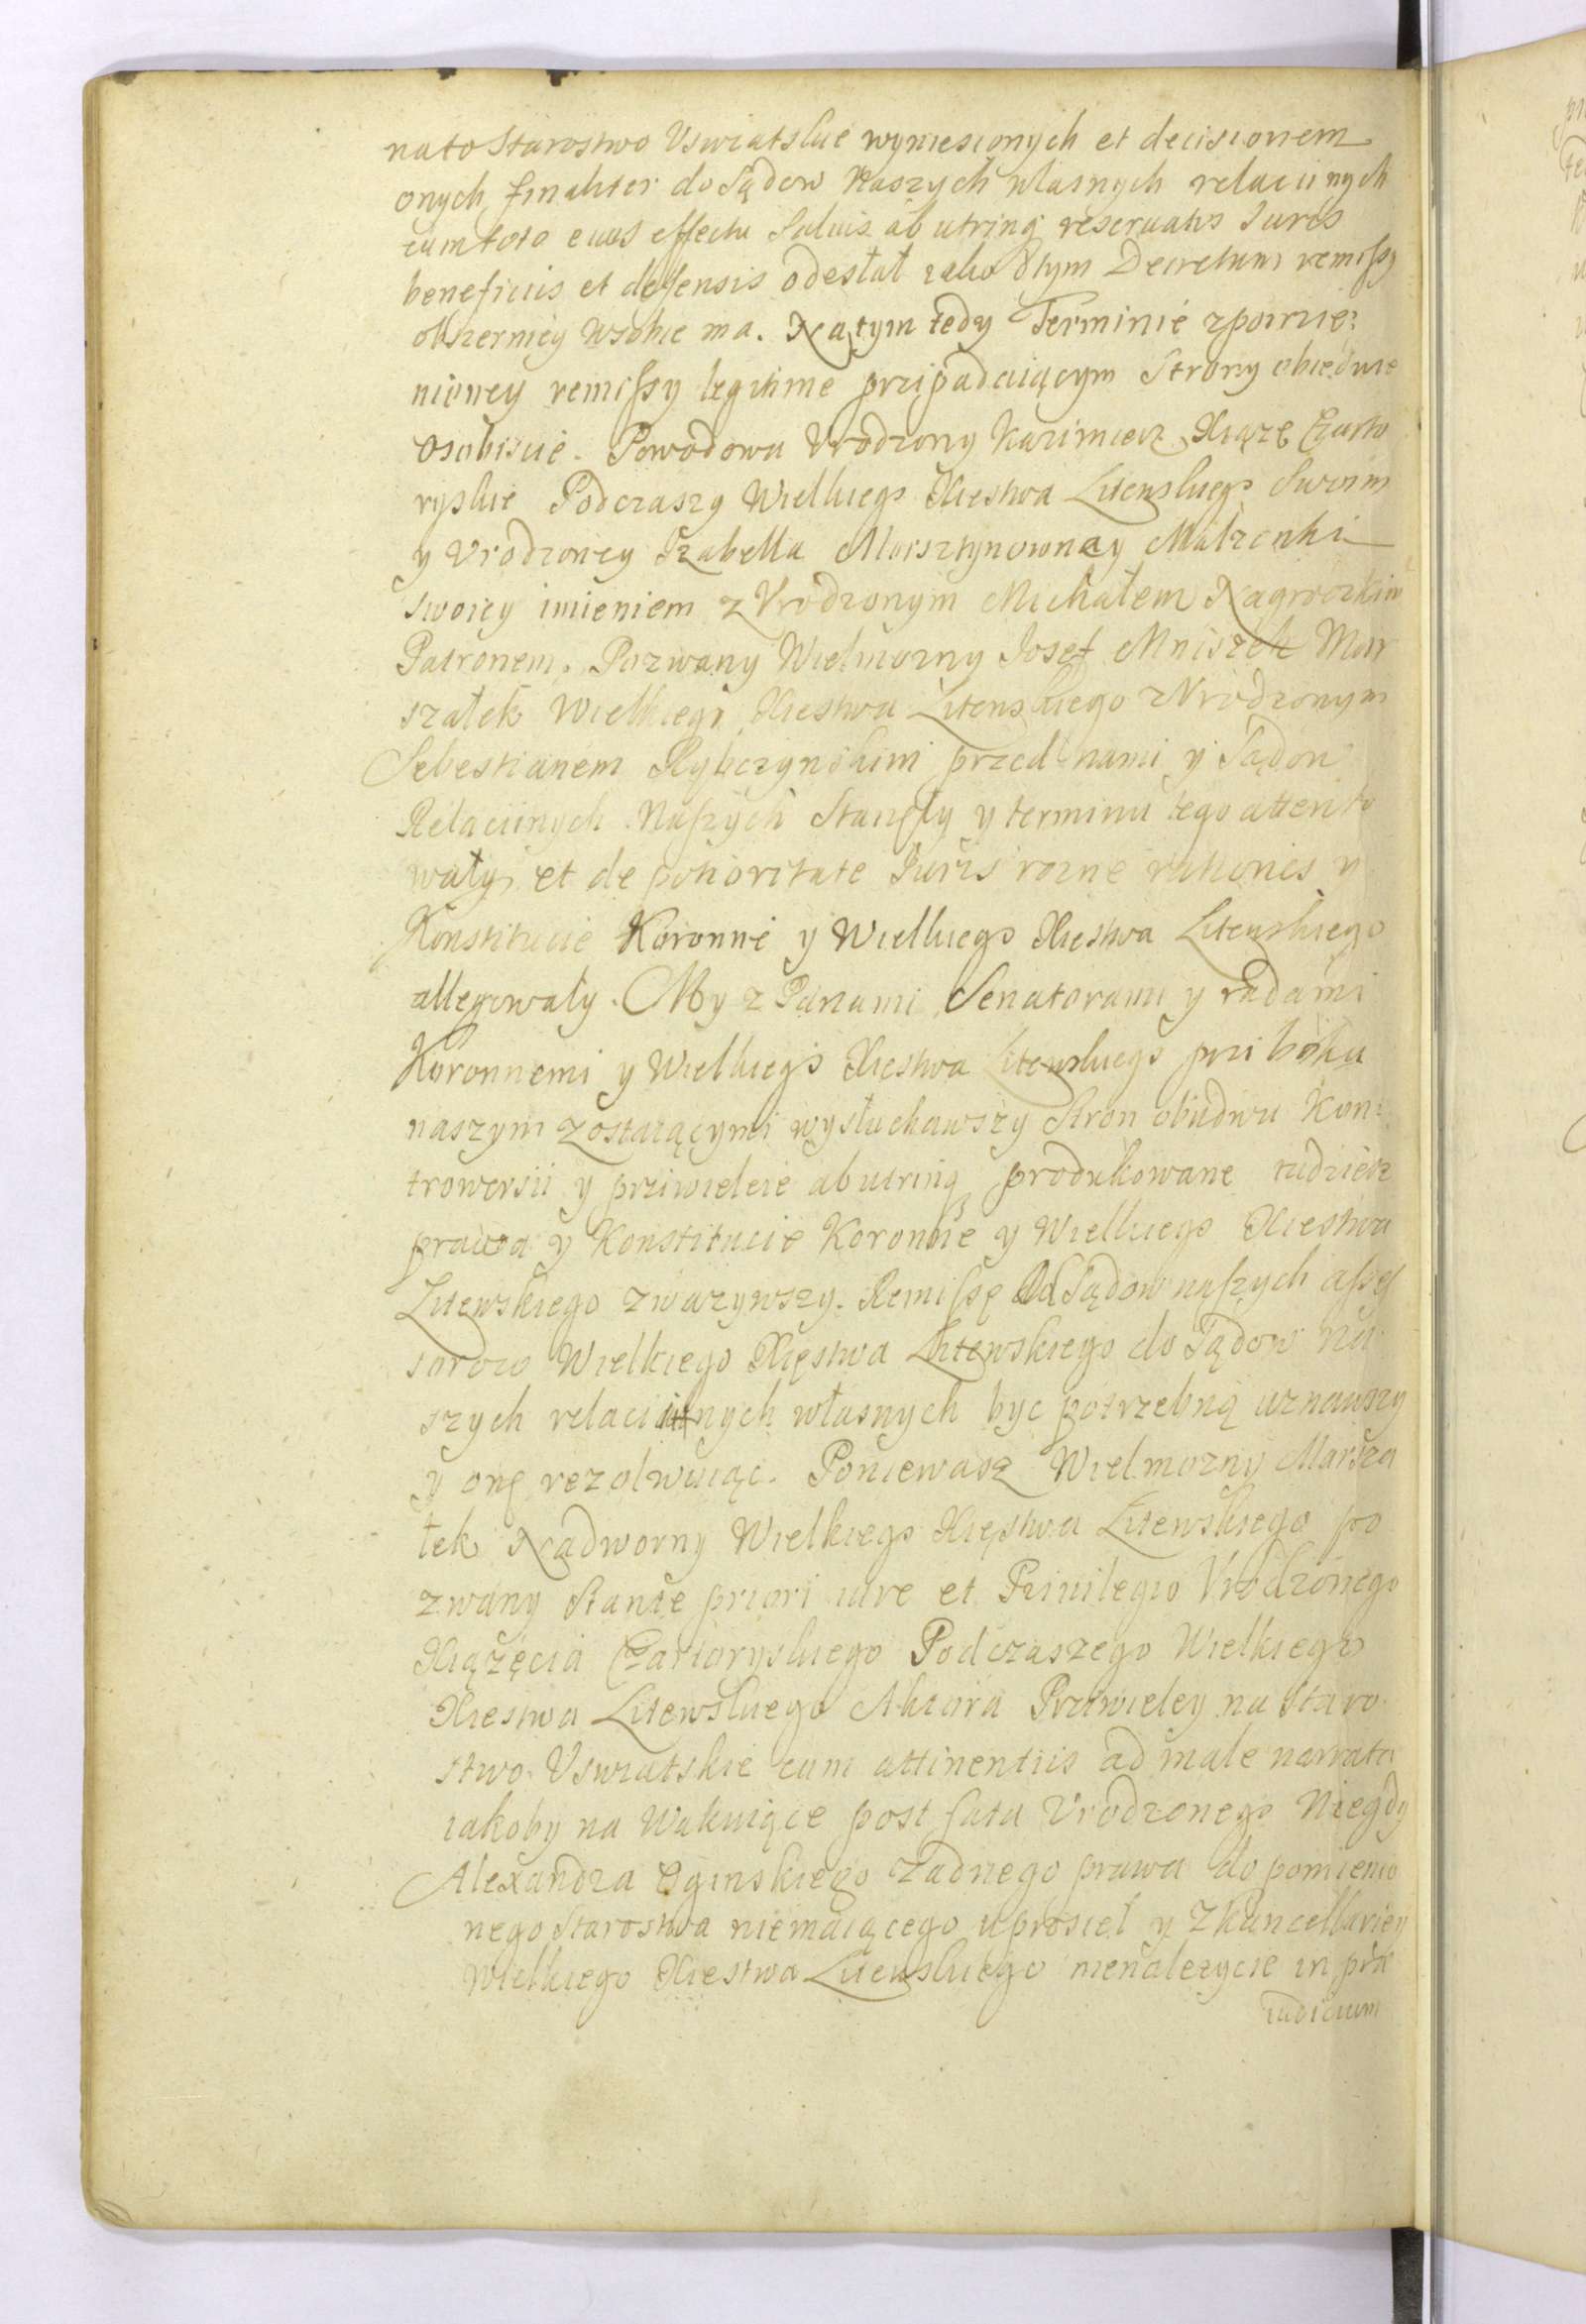 nato Starostwo Vswiatskie wyniesionych et decisionem
onych finaliter do Sądow Naszych własnych relaciinych
cum toto eius effectu Saluis ab utrinq reseruatis Juris
beneficiis et defensis odesłał iako o tym Decretum remissy
obszerniey w sobie ma. Na tym tedy Terminie z pomie:
nioney remissy legitime przipadaiącym Strony obiedwie
osobiscie. Powodowa Vrodzony Kazimierz Xiąże Czarto
ryskie Podczaszy Wielkiego Xiestwa Litewskiego Swoim
y Vrodzoney Izabella Morsztynowney Małzenki
swoiey imieniem z Vrodzonym Michałem Nagroczkim
Patronem. Pozwany Wielmozny Josef Mniszek Mar
szałek Wielkiego Xiestwa Litewskiego z Vrodzonym
Sebestianem Rybczynskim przed nami y Sądow
Relaciinych Naszych Staneły y terminu tego attento
wały, et de potioritate Juris rozne rationes y
Konstitucie Koronne y Wielkiego Xiestwa Litewskiego
allegowały. My z Panami Senatorami y radami
Koronnemi y Wielkiego Xiestwa Litewskiego pzi boku
naszym zostaiącymi wysłuchawszy Stron obudwu Kon:
trowersii y prziwieleie ab utrinq produkowane tudziesz
prawa y Konstitucie Koronne y Wielkiego Xiestwa
Litewskiego zwazywszy. Remissę Od Sądow naszych asses
sorow Wielkiego Xięstwa Litewskiego do Sądow na
szych relaciinych własnych byc potrzebną uznawszy
y onę rezolwuiąc. Poniewasz Wielmozny Marsza
łek Nadworny Wielkiego Xięstwa Litewskiego po
zwany Stante priori iure et Priuilegio Vrodzonego
Xiążęcia Czartoryskiego Podczaszego Wielkiego
Xiestwa Litewskiego Aktora Prziwieley na Staro
stwo Vswiatskie cum attinentiis ad male narrata
iakoby na Wakuiące post fata Vrodzonego Niegdy
Alexandra Oginskiego zadnego prawa do pomienio
nego Starostwa niemaiącego uprosieł y z Kancellariey
Wielkiego Xiestwa Litewskiego nienalezycie in præ
iudicium